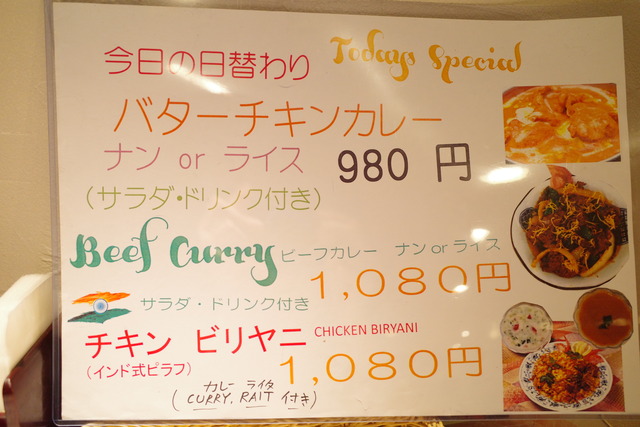 今日の日替わり Todays Special
バターチキンカレー
ナン or ライス 980 円
(サラダ・ドリンク付き)
Beef Curry ビーフカレー ナン or ライス
1,080円
サラダ・ドリンク付き
チキン ビリヤニ CHICKEN BIRYANI
(インド式ピラフ) 1,080円
カレー ライタ
(CURRY, RAIT 付き)